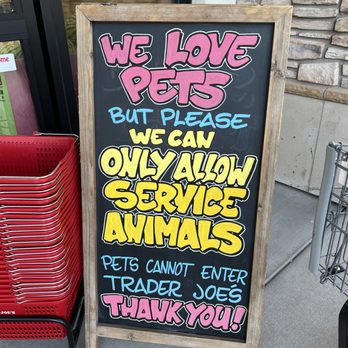 WE LOVE
PETS
BUT PLEASE
WE CAN
ONLY ALLOW
SERVICE
ANIMALS
PETS CANNOT ENTER
TRADER JOE'S
THANK YOU!